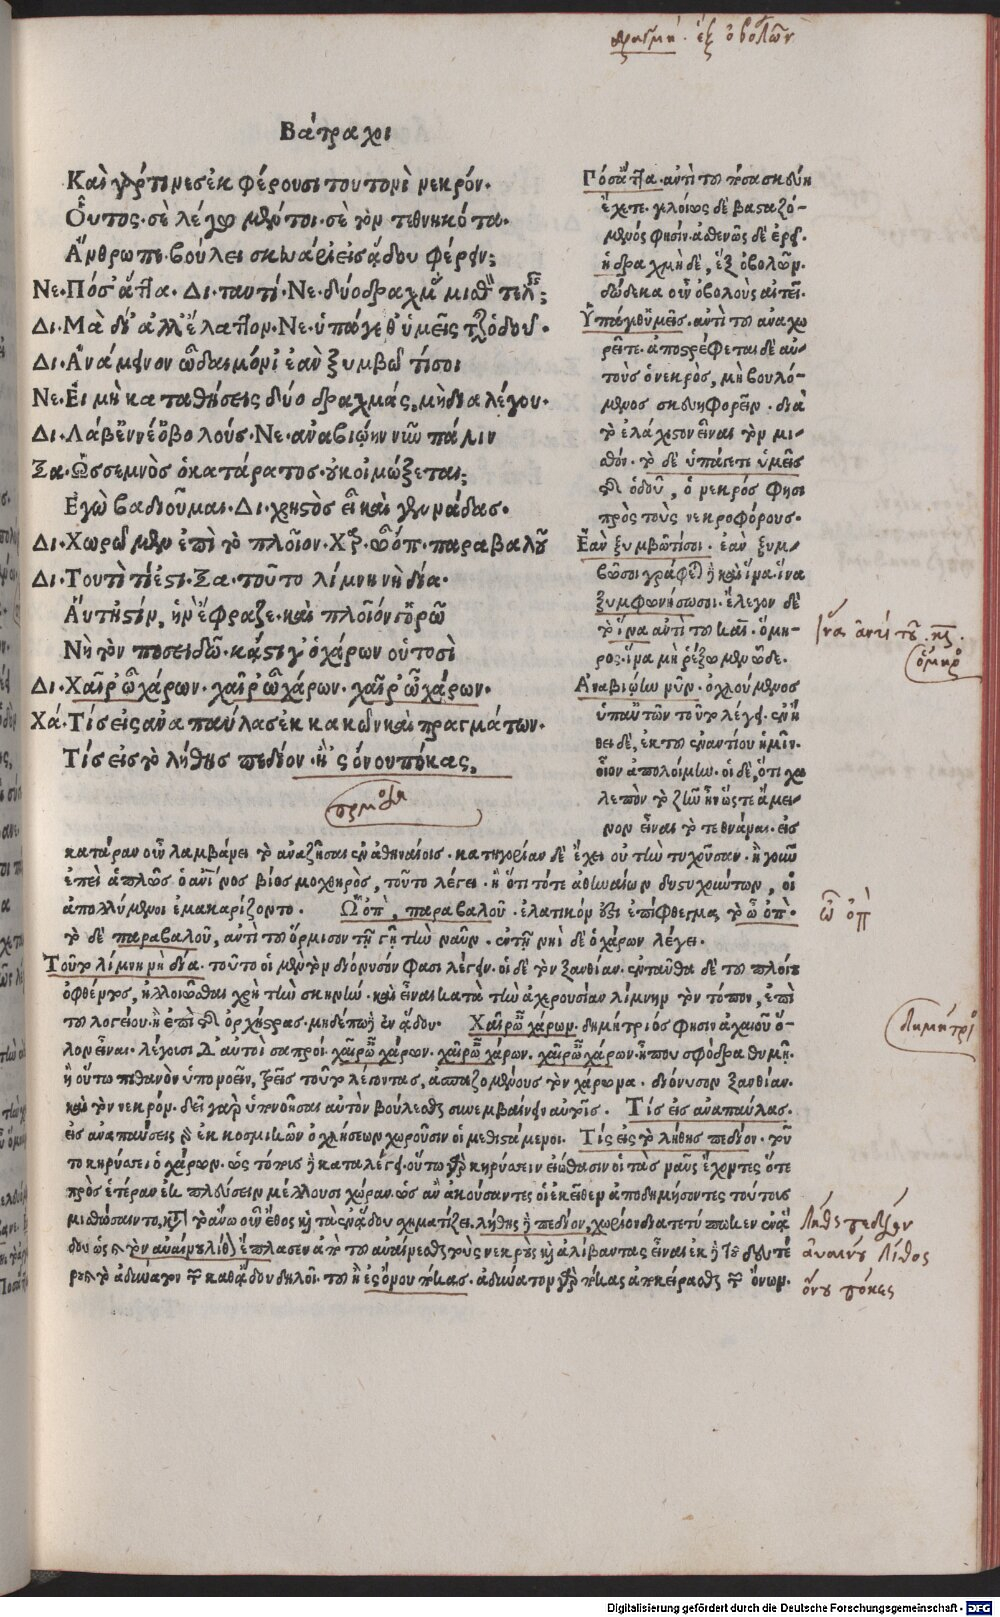 δραχμή. ἐξ ὀβολῶν
Βάτραχοι
Καὶ γάρ τιν' ἐκφέρουσι τουτονὶ νεκρόν.
Οὗτος. σὲ λέγω μέντοι. σὲ τὸν τεθνηκότα.
Ἄνθρωπε. βούλει σκευάρι' εἰς ᾅδου φέρειν;
Νε. Πόσ' ἄττα. Δι. ταυτί. Νε. δύο δραχμὰς μισθὸν τελεῖς;
Δι. Μὰ δί' ἀλλ' ἔλαττον. Νε. ὑπάγεθ' ὑμεῖς τῆς ὁδοῦ.
Δι. Ἀνάμεινον ὦ δαιμόνι' ἐὰν ξυμβῶ τί σοι
Νε. Εἰ μὴ καταθήσεις δύο δραχμάς, μὴ διαλέγου.
Δι. Λάβ' ἐννέ' ὀβολούς. Νε. ἀναβιῴην νῦν πάλιν
Ξα. Ὡς σεμνὸς ὁ κατάρατος. οὐκ οἰμώξεται;
Ἐγὼ βαδιοῦμαι. Δι. χρηστὸς εἶ καὶ γεννάδας.
Δι. Χωρῶμεν ἐπὶ τὸ πλοῖον. Χα. ὠὸπ. παραβαλοῦ
Δι. Τουτὶ τί ἐστι. Ξα. τοῦτο λίμνη νὴ δία.
Αὕτη 'στὶν, ἣν ἔφραζε. καὶ πλοῖόν γ' ὁρῶ
Νὴ τὸν ποσειδῶ. κἄστι γ' ὁ χάρων οὑτοσὶ
Δι. Χαῖρ' ὦ χάρων. χαῖρ' ὦ χάρων. χαῖρ' ὦ χάρων.
Χά. Τίς εἰς ἀναπαύλας ἐκ κακῶν καὶ πραγμάτων.
Τίς εἰς τὸ λήθης πεδίον. ἢ 'ς ὄνου πόκας,
Πόσ' ἄττα. ἀντὶ τοῦ πόσα σκεύη
ἔχετε. γλοίως δὲ βασταζό-
μενός φησιν. ἀσθενῶς δὲ ἐρεῖ.
ἡ δραχμὴ δὲ, ἓξ ὀβολῶν.
δώδεκα οὖν ὀβολοὺς αἰτεῖ.
Ὑπάγεθ' ὑμεῖς. ἀντὶ τοῦ ἀναχω
ρεῖτε. ἀποστρέφεται δὲ αὐ-
τοὺς ὁ νεκρὸς, μὴ βουλό-
μενος σκευηφορεῖν. διὰ
τὸ ἐλάχιστον εἶναι τὸν μι-
σθόν. τὸ δὲ ὑπάγετε ὑμεῖς
τῆς ὁδοῦ, ὁ νεκρός φησι
πρὸς τοὺς νεκροφόρους.
Ἐὰν ξυμβῶ τί σοι. ἐὰν ξυμ-
βῶσοι γράφεται καὶ ἵνα. ἵνα
ξυμφωνήσωσοι. ἔλεγον δὲ
τὸ ἵνα ἀντὶ τοῦ καὶ. ὅμη-
ρος. ἵνα μὴ ῥέξομεν ὧδε.
Ἀναβιῴην νῦν. ὀχλούμενος
ὑπ' αὐτῶν τοῦτο λέγει. εὐή
θει δὲ, ἐκ τοῦ ἐναντίου ἡμῖν.
οἷον ἀπολοίμην. οἱ δὲ, ὅτι χα
λεπὸν τὸ ζῆν ἦν ὥστε ἄμει-
νον εἶναι τὸ τεθνάναι. εἰς
κατάραν οὖν λαμβάνει τὸ ἀναζῆσαι ἐν ἀθηναίοις. κατηγορίαν δὲ ἔχει οὐ τὴν τυχοῦσαν. ἢ γοῦν
ἐπεὶ ἁπλῶς ὁ ἀνθρώπινος βίος μοχθηρὸς, τοῦτο λέγει. ἢ ὅτι τότε ἀθηναίων δυστυχούντων, οἱ
ἀπολλύμενοι ἐμακαρίζοντο. Ὠὸπ, παραβαλοῦ. ἐλατικόν ἐστι ἐπίφθεγμα τὸ ὠ ὀπ.
τὸ δὲ παραβαλοῦ, ἀντὶ τοῦ ὅρμισον τῇ γῇ τὴν ναῦν. ἐν τῇ νηὶ δὲ ὁ χάρων λέγει.
Τοῦτο λίμνη νὴ δία. τοῦτο οἱ μὲν τὸν διόνυσόν φασι λέγειν. οἱ δὲ τὸν ξανθίαν. ἐνταῦθα δὲ τοῦ πλοίου
ὀφθέντος, ἠλλοιῶσθαι χρὴ τὴν σκηνὴν. καὶ εἶναι κατὰ τὴν ἀχερουσίαν λίμνην τὸν τόπον, ἐπὶ
τοῦ λογείου. ἢ ἐπὶ τῆς ὀρχήστρας. μηδέπω δὲ ἐν ᾅδου. Χαῖρ' ὦ χάρων. δημήτριός φησιν ἀχαιοῦ ὅ-
λον εἶναι. λέγουσι δ' αὐτοὶ σατυροί. χαῖρ' ὦ χάρων. χαῖρ' ὦ χάρων. χαῖρ' ὦ χάρων. ἦπου σφόδρα θυμοῖ.
ἢ οὕτω πιθανὸν ὑπονοεῖν, τρεῖς τοῦτο λέγοντας, ἀσπαζομένους τὸν χάρωνα. διόνυσον ξανθίαν.
καὶ τὸν νεκρόν. δεῖ γὰρ ὑπνοῆσαι αὐτὸν βούλεσθαι συνεμβαίνειν αὐτοῖς. Τίς εἰς ἀναπαύλας.
εἰς ἀναπαύσεις δὲ ἐκ κοσμικῶν ὀχλήσεων χωροῦσιν οἱ μεθιστάμενοι. Τίς εἰς τὸ λήθης πεδίον. τοῦ
το κηρύσσει ὁ χάρων. ὡς τόπους δὲ καταλέγει. οὕτω γὰρ κηρύσσειν εἰώθασιν οἱ τὰς ναῦς ἔχοντες ὅτε
πρὸς ἑτέραν ἐκπλεύσειν μέλλουσι χώραν. ὡς ἂν ἀκούσαντες οἱ ἐκεῖθεν ἀποδημήσοντες τούτοις
μισθώσαιντο, κατὰ τὸ ἄνω οὖν ἔθος καὶ τὰ ἐν ᾅδου σχηματίζει. λήθης δὲ πεδίον, χωρίον διατετύπωκεν ἐν ᾅ
δου ὡς καὶ τὸν αὐαίνου λίθον ἔπλασεν ἀπὸ τοῦ αὐαίνεσθαι τοὺς νεκροὺς καὶ ἀλίβαντας εἶναι ἐκ δὲ τοῦ δευτέ
ρου τὸ ἀδύνατον τῶν καθ' ᾅδου δηλοῖ. τοῦ ἢ ἐς ὄνου πόκας. ἀδύνατον γὰρ πόκας ἀποκείρασθαι τῶν ὄνων.
ἵνα ἀντὶ τοῦ καὶ.
ὅμηρος
ὠ ὀπ
Δημήτριος
Λήθης πεδίον
αὐαίνου λίθος
ὄνου πόκας
Digitalisierung gefördert durch die Deutsche Forschungsgemeinschaft - DFG